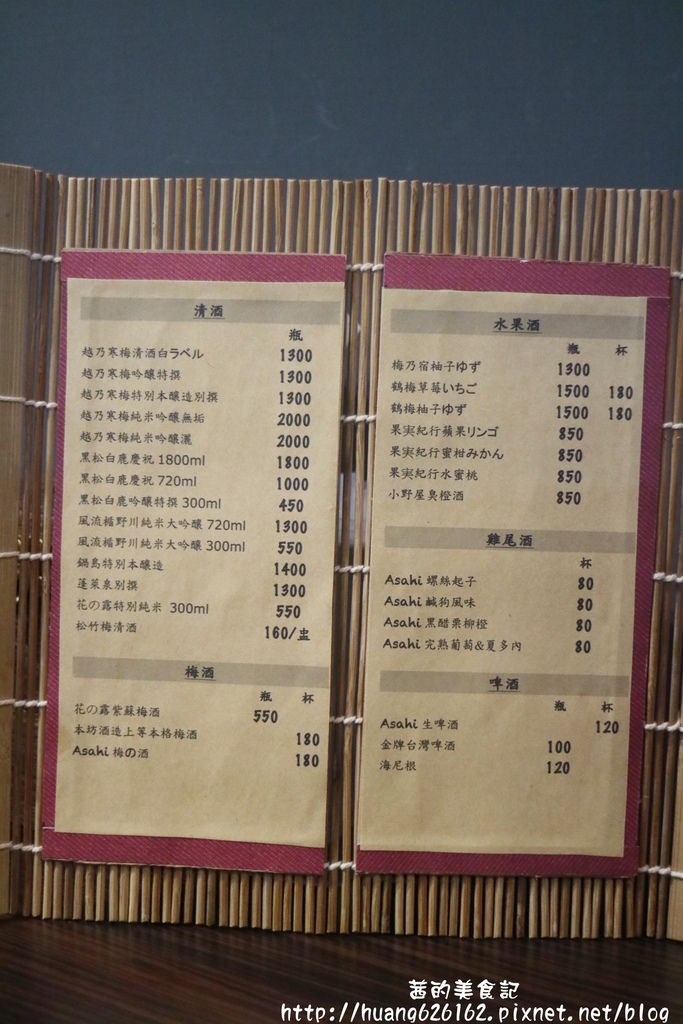 清酒
瓶
越乃寒梅清酒白ラベル 1300
越乃寒梅吟釀特撰 1300
越乃寒梅特別本釀造別撰 1300
越乃寒梅純米吟釀無垢 2000
越乃寒梅純米吟釀灑 2000
黑松白鹿慶祝 1800ml 1800
黑松白鹿慶祝 720ml 1000
黑松白鹿吟釀特撰 300ml 450
風流楯野川純米大吟釀 720ml 1300
風流楯野川純米大吟釀 300ml 550
鍋島特別本釀造 1400
蓬萊泉別撰 1300
花の露特別純米 300ml 550
松竹梅清酒 160/盅
梅酒
瓶 杯
花の露紫蘇梅酒 550
本坊酒造上等本格梅酒 180
Asahi 梅の酒 180
水果酒
瓶 杯
梅乃宿柚子ゆず 1300
鶴梅草莓いちご 1500 180
鶴梅柚子ゆず 1500 180
果実紀行蘋果リンゴ 850
果実紀行蜜柑みかん 850
果実紀行水蜜桃 850
小野屋臭橙酒 850
雞尾酒
杯
Asahi 螺絲起子 80
Asahi 鹹狗風味 80
Asahi 黑醋栗柳橙 80
Asahi 完熟葡萄&夏多內 80
啤酒
瓶 杯
Asahi 生啤酒 120
金牌台灣啤酒 100
海尼根 120
茜的美食記
http://huang626162.pixnet.net/blog